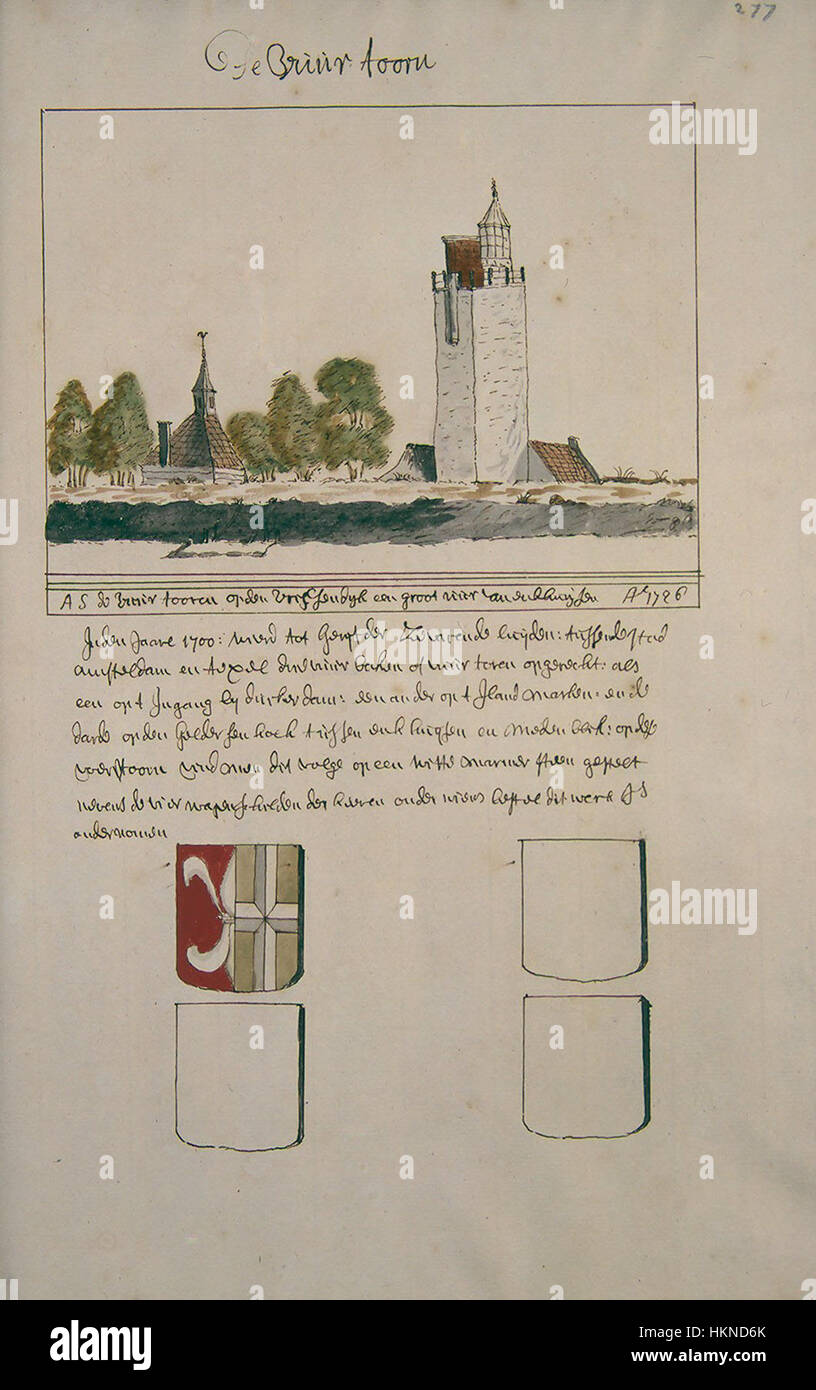 277
De Vuur toorn
A S de vuur tooren op den een groot uur van enkhuysen Aº 1726
Inden Jaare 1700: wierd tot der Zeevarende luijden: tusschen de stad
amsteldam en texel drie vuur baken of vuur toren opgerecht: als
een op t Ingang bij durkerdam: een ander op t Iland Marken: en de
darde op den Gelder sen hoek tussen enkhuijsen en Medenblik: op des
toorn vind men dit volge op een witte marmer steen gestelt
nevens de vier wapenschilden der heeren onder wiens bestel dit werk is
ondernomen
alamy stock photo
alamy
Image ID: HKND6K
www.alamy.com